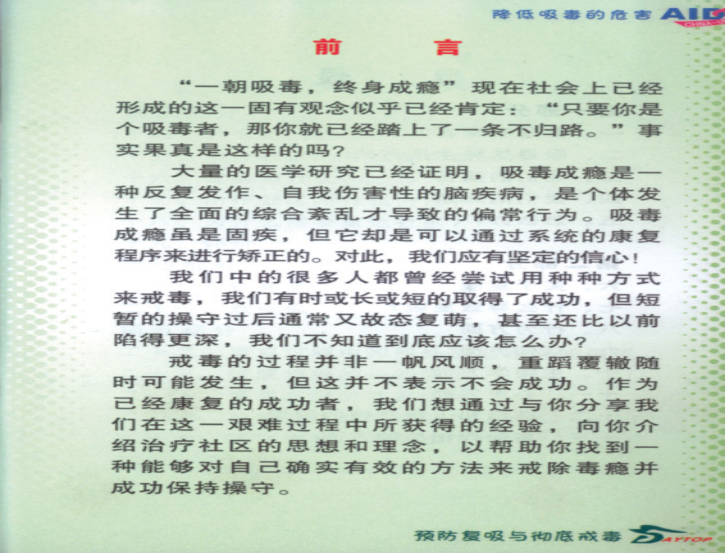 降低吸毒的危害 AID
CHINA
前 言
“一朝吸毒，终身成瘾”现在社会上已经
形成的这一固有观念似乎已经肯定：“只要你是
个吸毒者，那你就已经踏上了一条不归路。”事
实果真是这样的吗？
大量的医学研究已经证明，吸毒成瘾是一
种反复发作、自我伤害性的脑疾病，是个体发
生了全面的综合紊乱才导致的偏常行为。吸毒
成瘾虽是固疾，但它却是可以通过系统的康复
程序来进行矫正的。对此，我们应有坚定的信心！
我们中的很多人都曾经尝试用种种方式
来戒毒，我们有时或长或短的取得了成功，但短
暂的操守过后通常又故态复萌，甚至还比以前
陷得更深，我们不知道到底应该怎么办？
戒毒的过程并非一帆风顺，重蹈覆辙随
时可能发生，但这并不表示不会成功。作为
已经康复的成功者，我们想通过与你分享我
们在这一艰难过程中所获得的经验，向你介
绍治疗社区的思想和理念，以帮助你找到一
种能够对自己确实有效的方法来戒除毒瘾并
成功保持操守。
预防复吸与彻底戒毒 DAYTOP